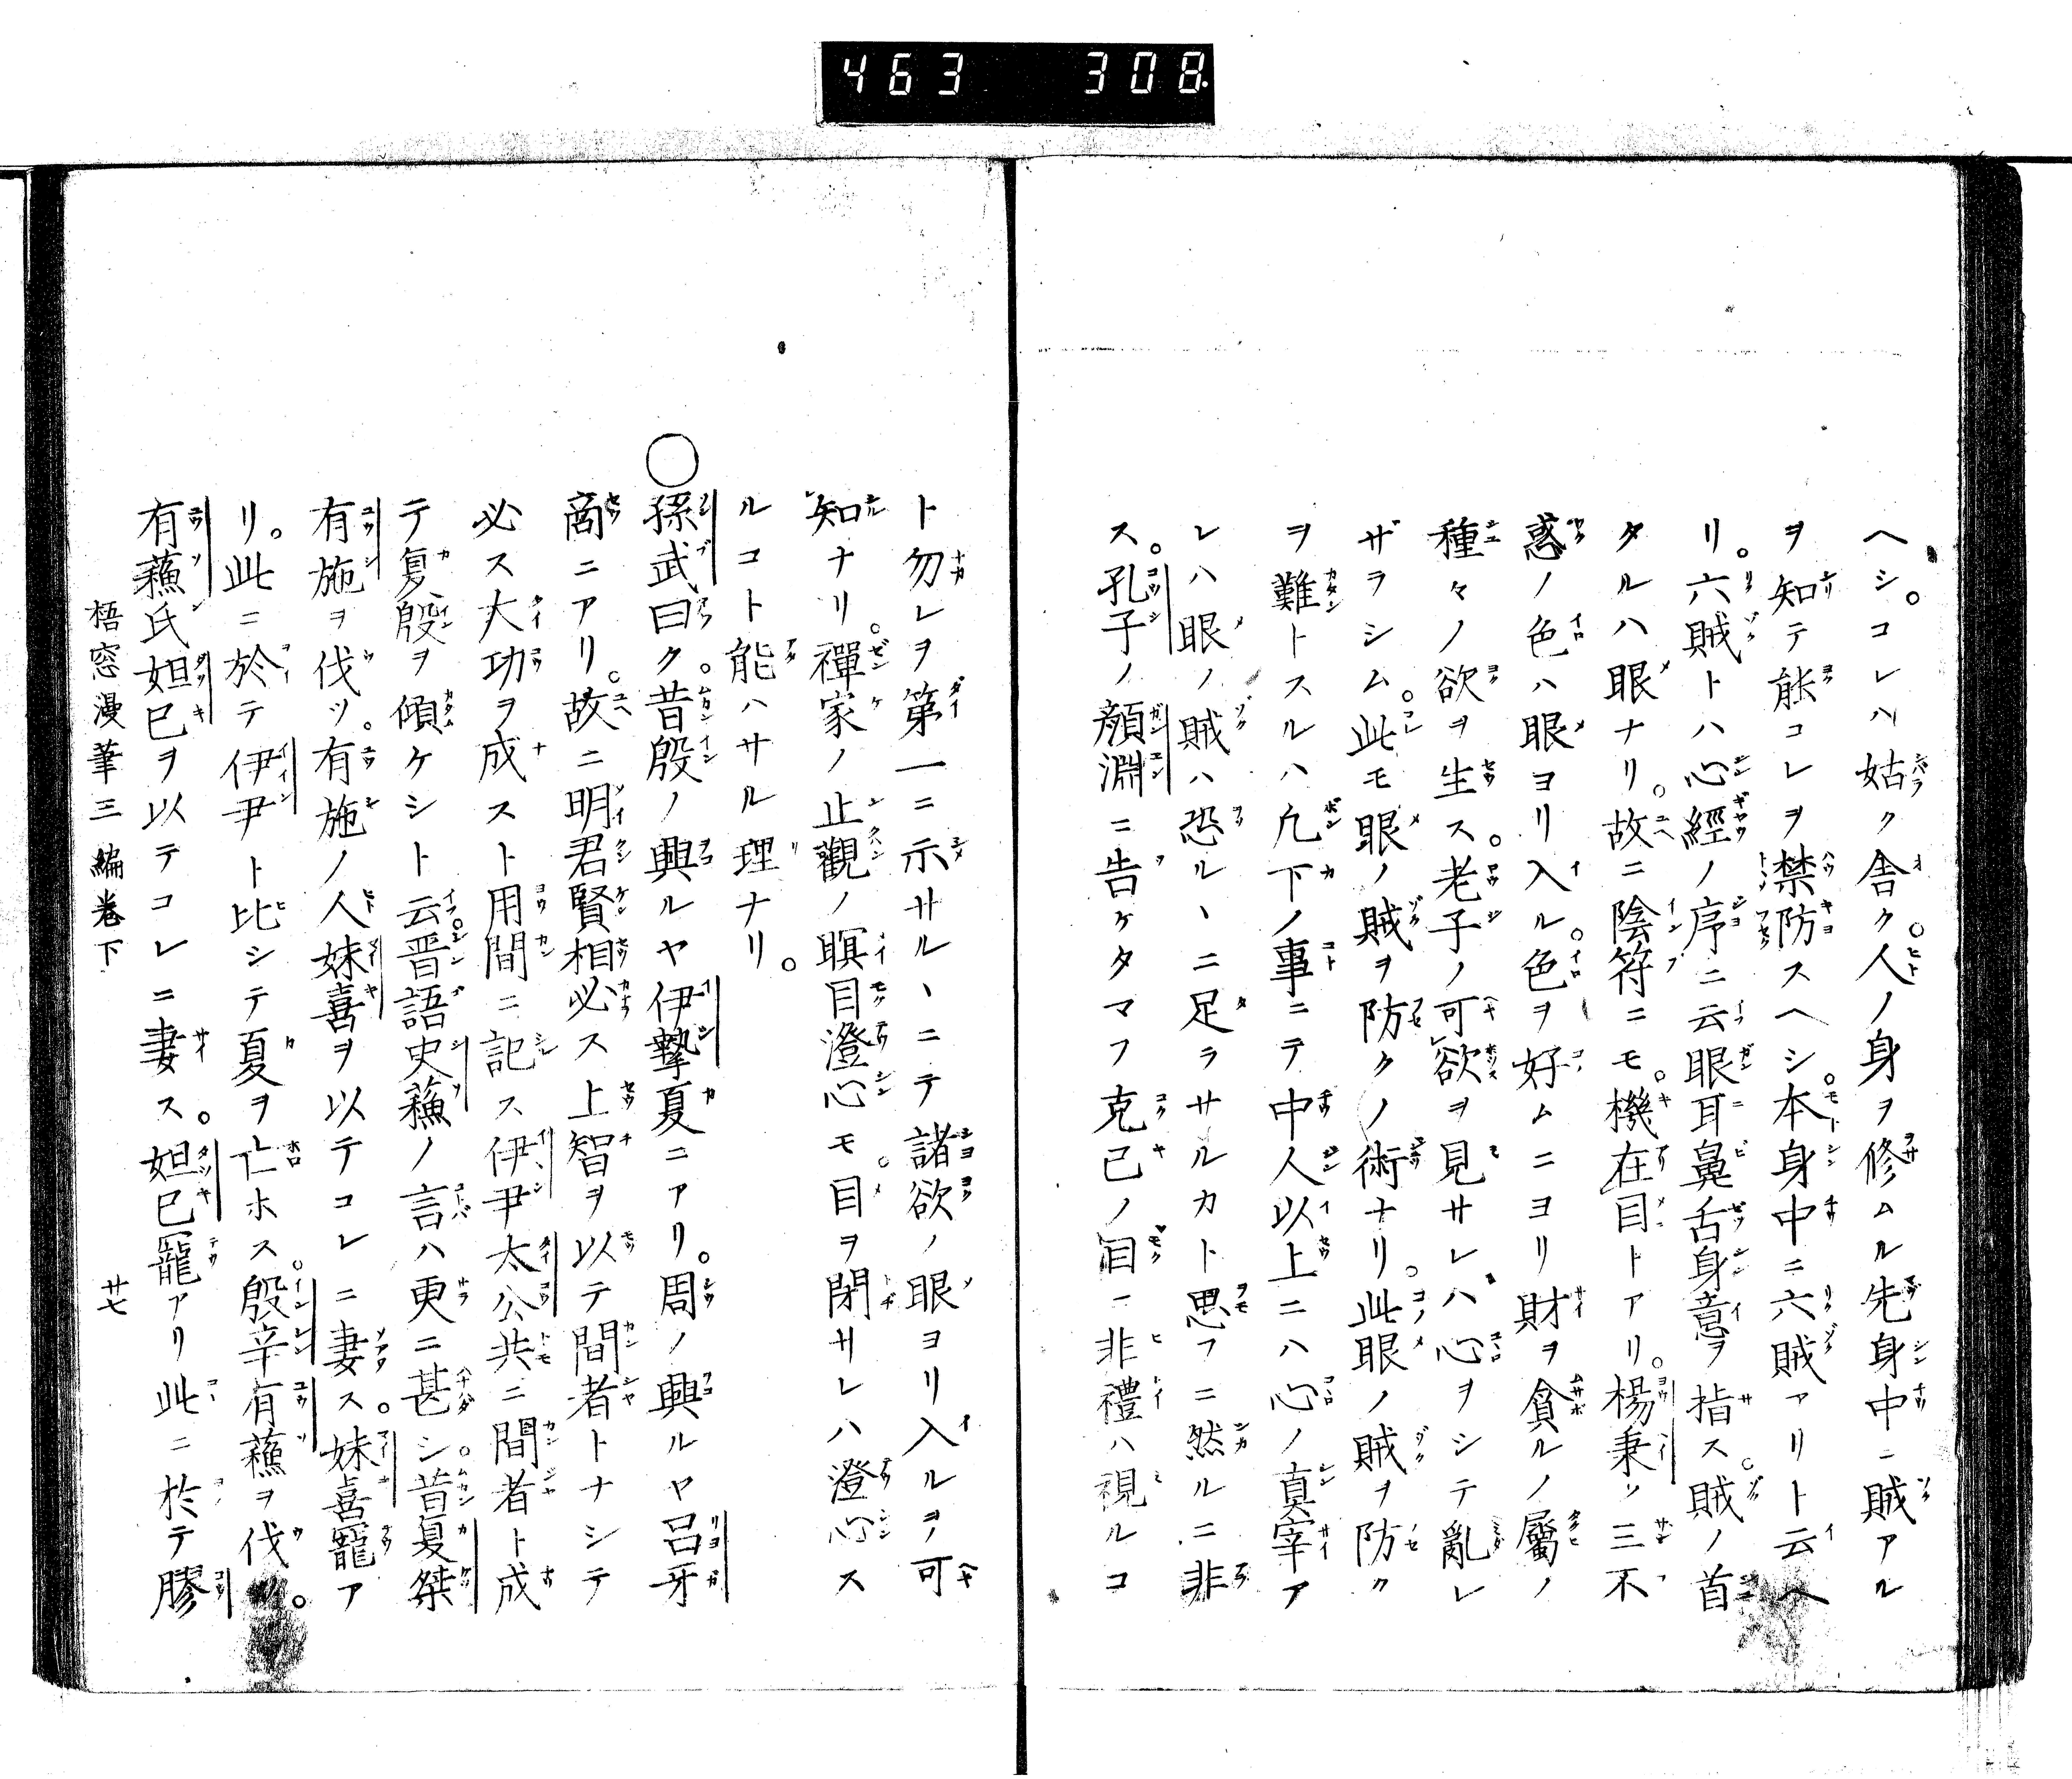 463 308
ヘシ。コレハ姑ク舎ク。人ノ身ヲ修ムル先身中ニ賊アル
ヲ知テ能コレヲ禁防スヘシ。本身中ニ六賊アリト云ヘ
リ。六賊トハ心經ノ序ニ云眼耳鼻舌身意ヲ指ス。賊ノ首
タルハ眼ナリ。故ニ陰符ニモ。機在目トアリ。楊秉ノ三不
惑ノ色ハ眼ヨリ入ル。色ヲ好ムニヨリ財ヲ貪ルノ屬ノ
種々ノ欲ヲ生ス。老子ノ可レ欲ヲ見サレハ心ヲシテ亂レ
ザラシム。此モ眼ノ賊ヲ防クノ術ナリ。此眼ノ賊ヲ防ク
ヲ難トスルハ凢下ノ事ニテ中人以上ニハ心ノ真宰ア
レハ眼ノ賊ハ恐ル丶ニ足ラサルカト思フニ然ルニ非
ス。孔子ノ顔淵ニ告ケタマフ克己ノ目ニ非禮ハ視ルコ
ト勿レヲ第一ニ示サル丶ニテ諸欲ノ眼ヨリ入ルヲ可
レ知ナリ。禪家ノ止觀ノ瞑目澄心モ。目ヲ閉サレハ澄心ス
ルコト能ハサル理ナリ。
○孫武曰ク。昔殷ノ興ルヤ伊摯夏ニアリ。周ノ興ルヤ呂牙
商ニアリ。故ニ明君賢相必ス上智ヲ以テ間者トナシテ
必ス大功ヲ成スト用間ニ記ス伊尹太公共ニ間者ト成
テ夏殷ヲ傾ケシト云。晋語史蘓ノ言ハ更ニ甚シ。昔夏桀
有施ヲ伐ツ。有施ノ人妹喜ヲ以テコレニ妻ス。妹喜寵ア
リ。此ニ於テ伊尹ト比シテ夏ヲ亡ホス。殷辛有蘓ヲ伐。
有蘓氏妲已ヲ以テコレニ妻ス。妲已寵アリ此ニ於テ膠
梧窓漫筆三編巻下 廿七